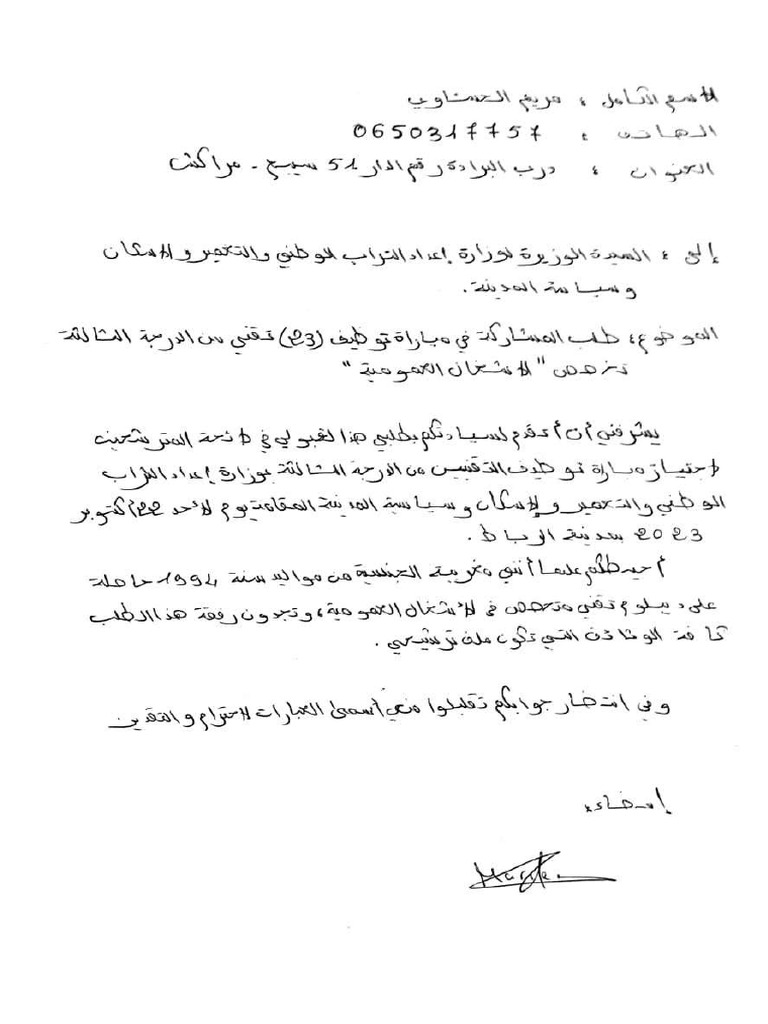 الاسم الكامل : مريم الحسناوي
الهاتف : 0650317757
العنوان : درب البرادة رقم الدار 51 سيبع - مراكش
إلى : السيدة الوزيرة لوزارة إعداد التراب الوطني والتعمير والاسكان
وسياسة المدينة.
الموضوع : طلب المشاركة في مباراة توظيف (23) تقني من الدرجة الثالثة
تخصص "الاشغال العمومية"
يشرفني أن أتقدم لسيادتكم بطلبي هذا لقبولي في لائحة المترشحين
لاجتياز مباراة توظيف التقنيين من الدرجة الثالثة بوزارة إعداد التراب
الوطني والتعمير والإسكان وسياسة المدينة المقامة يوم الأحد 22 أكتوبر
2023 بمدينة الرباط.
أحيطكم علما أنني مغربية الجنسية من مواليد سنة 1994 حاصلة
على ديبلوم تقني متخصص في الأشغال العمومية، وتجدون رفقة هذا الطلب
كافة الوثائق التي تكون ملف ترشيحي.
وفي انتظار جوابكم تقبلوا مني أسمى العبارات الاحترام والتقدير
إمضاء: